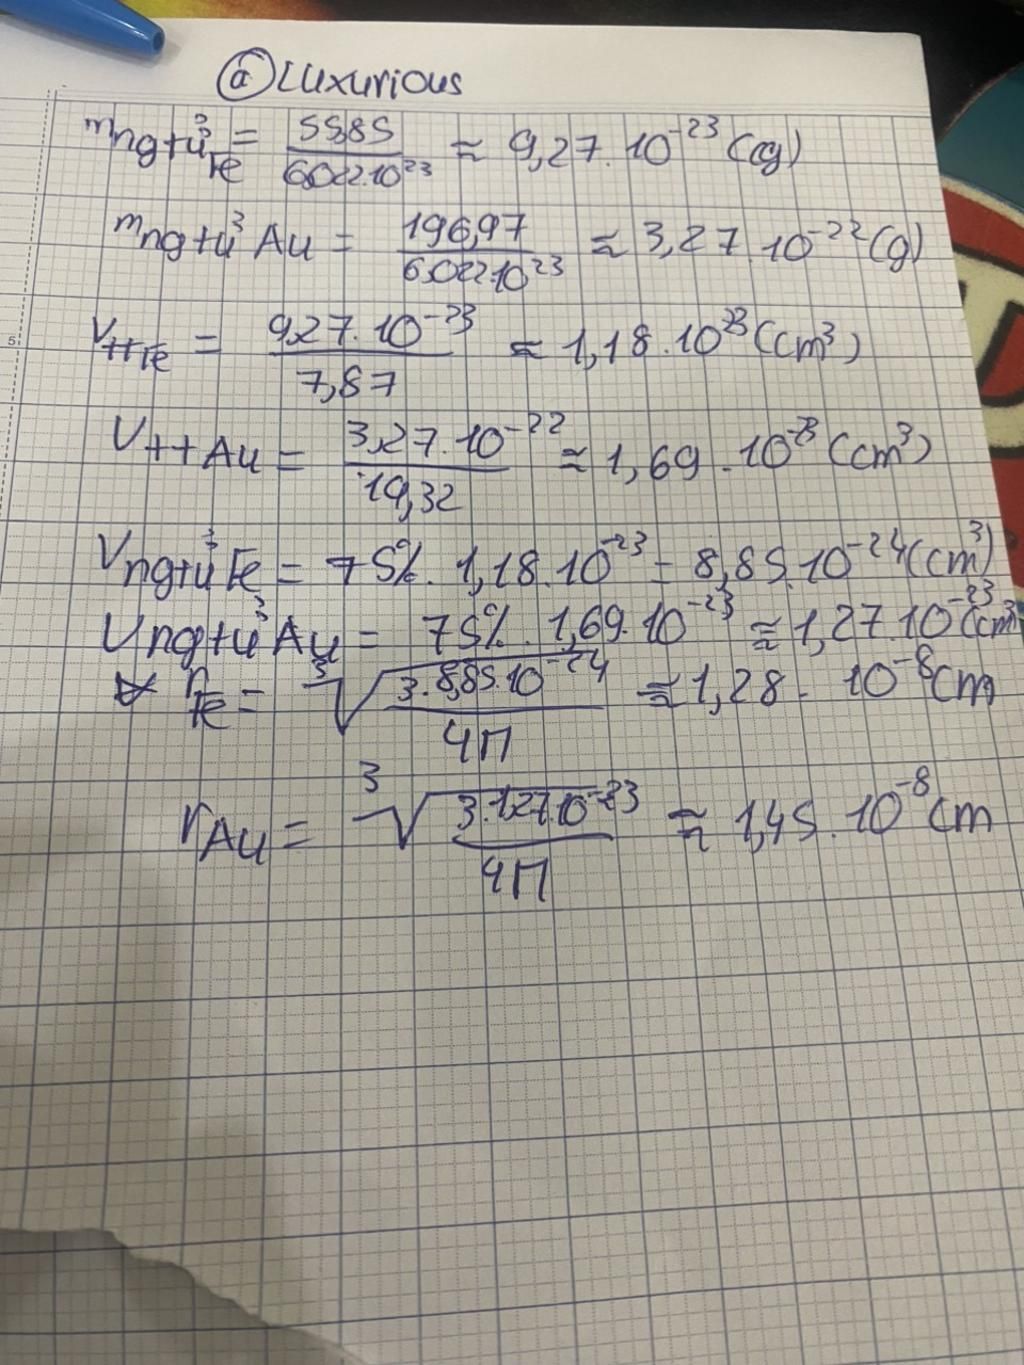 @Luxurious
mngtử Fe = 55,85 / 6,022.10^23 ≈ 9,27.10^-23 (g)
mngtử Au = 196,97 / 6,022.10^23 ≈ 3,27.10^-22 (g)
5
Vtt Fe = 9,27.10^-23 / 7,87 ≈ 1,18.10^-23 (cm³)
Vtt Au = 3,27.10^-22 / 19,32 ≈ 1,69.10^-23 (cm³)
Vngtử Fe = 75%. 1,18.10^-23 = 8,85.10^-24 (cm³)
Vngtử Au = 75%. 1,69.10^-23 ≈ 1,27.10^-23 (cm³)
rFe = ³√(3.8,85.10^-24 / 4π) ≈ 1,28.10^-8 cm
rAu = ³√(3.1,27.10^-23 / 4π) ≈ 1,45.10^-8 cm